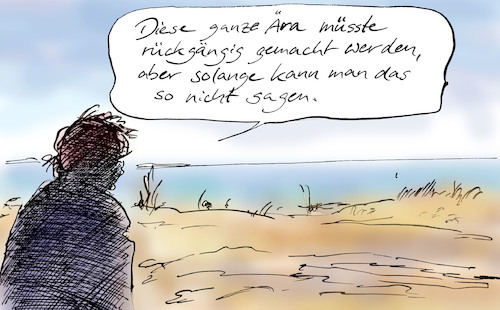 Diese ganze Ära müsste
rückgängig gemacht werden,
aber solange kann man das
so nicht sagen.